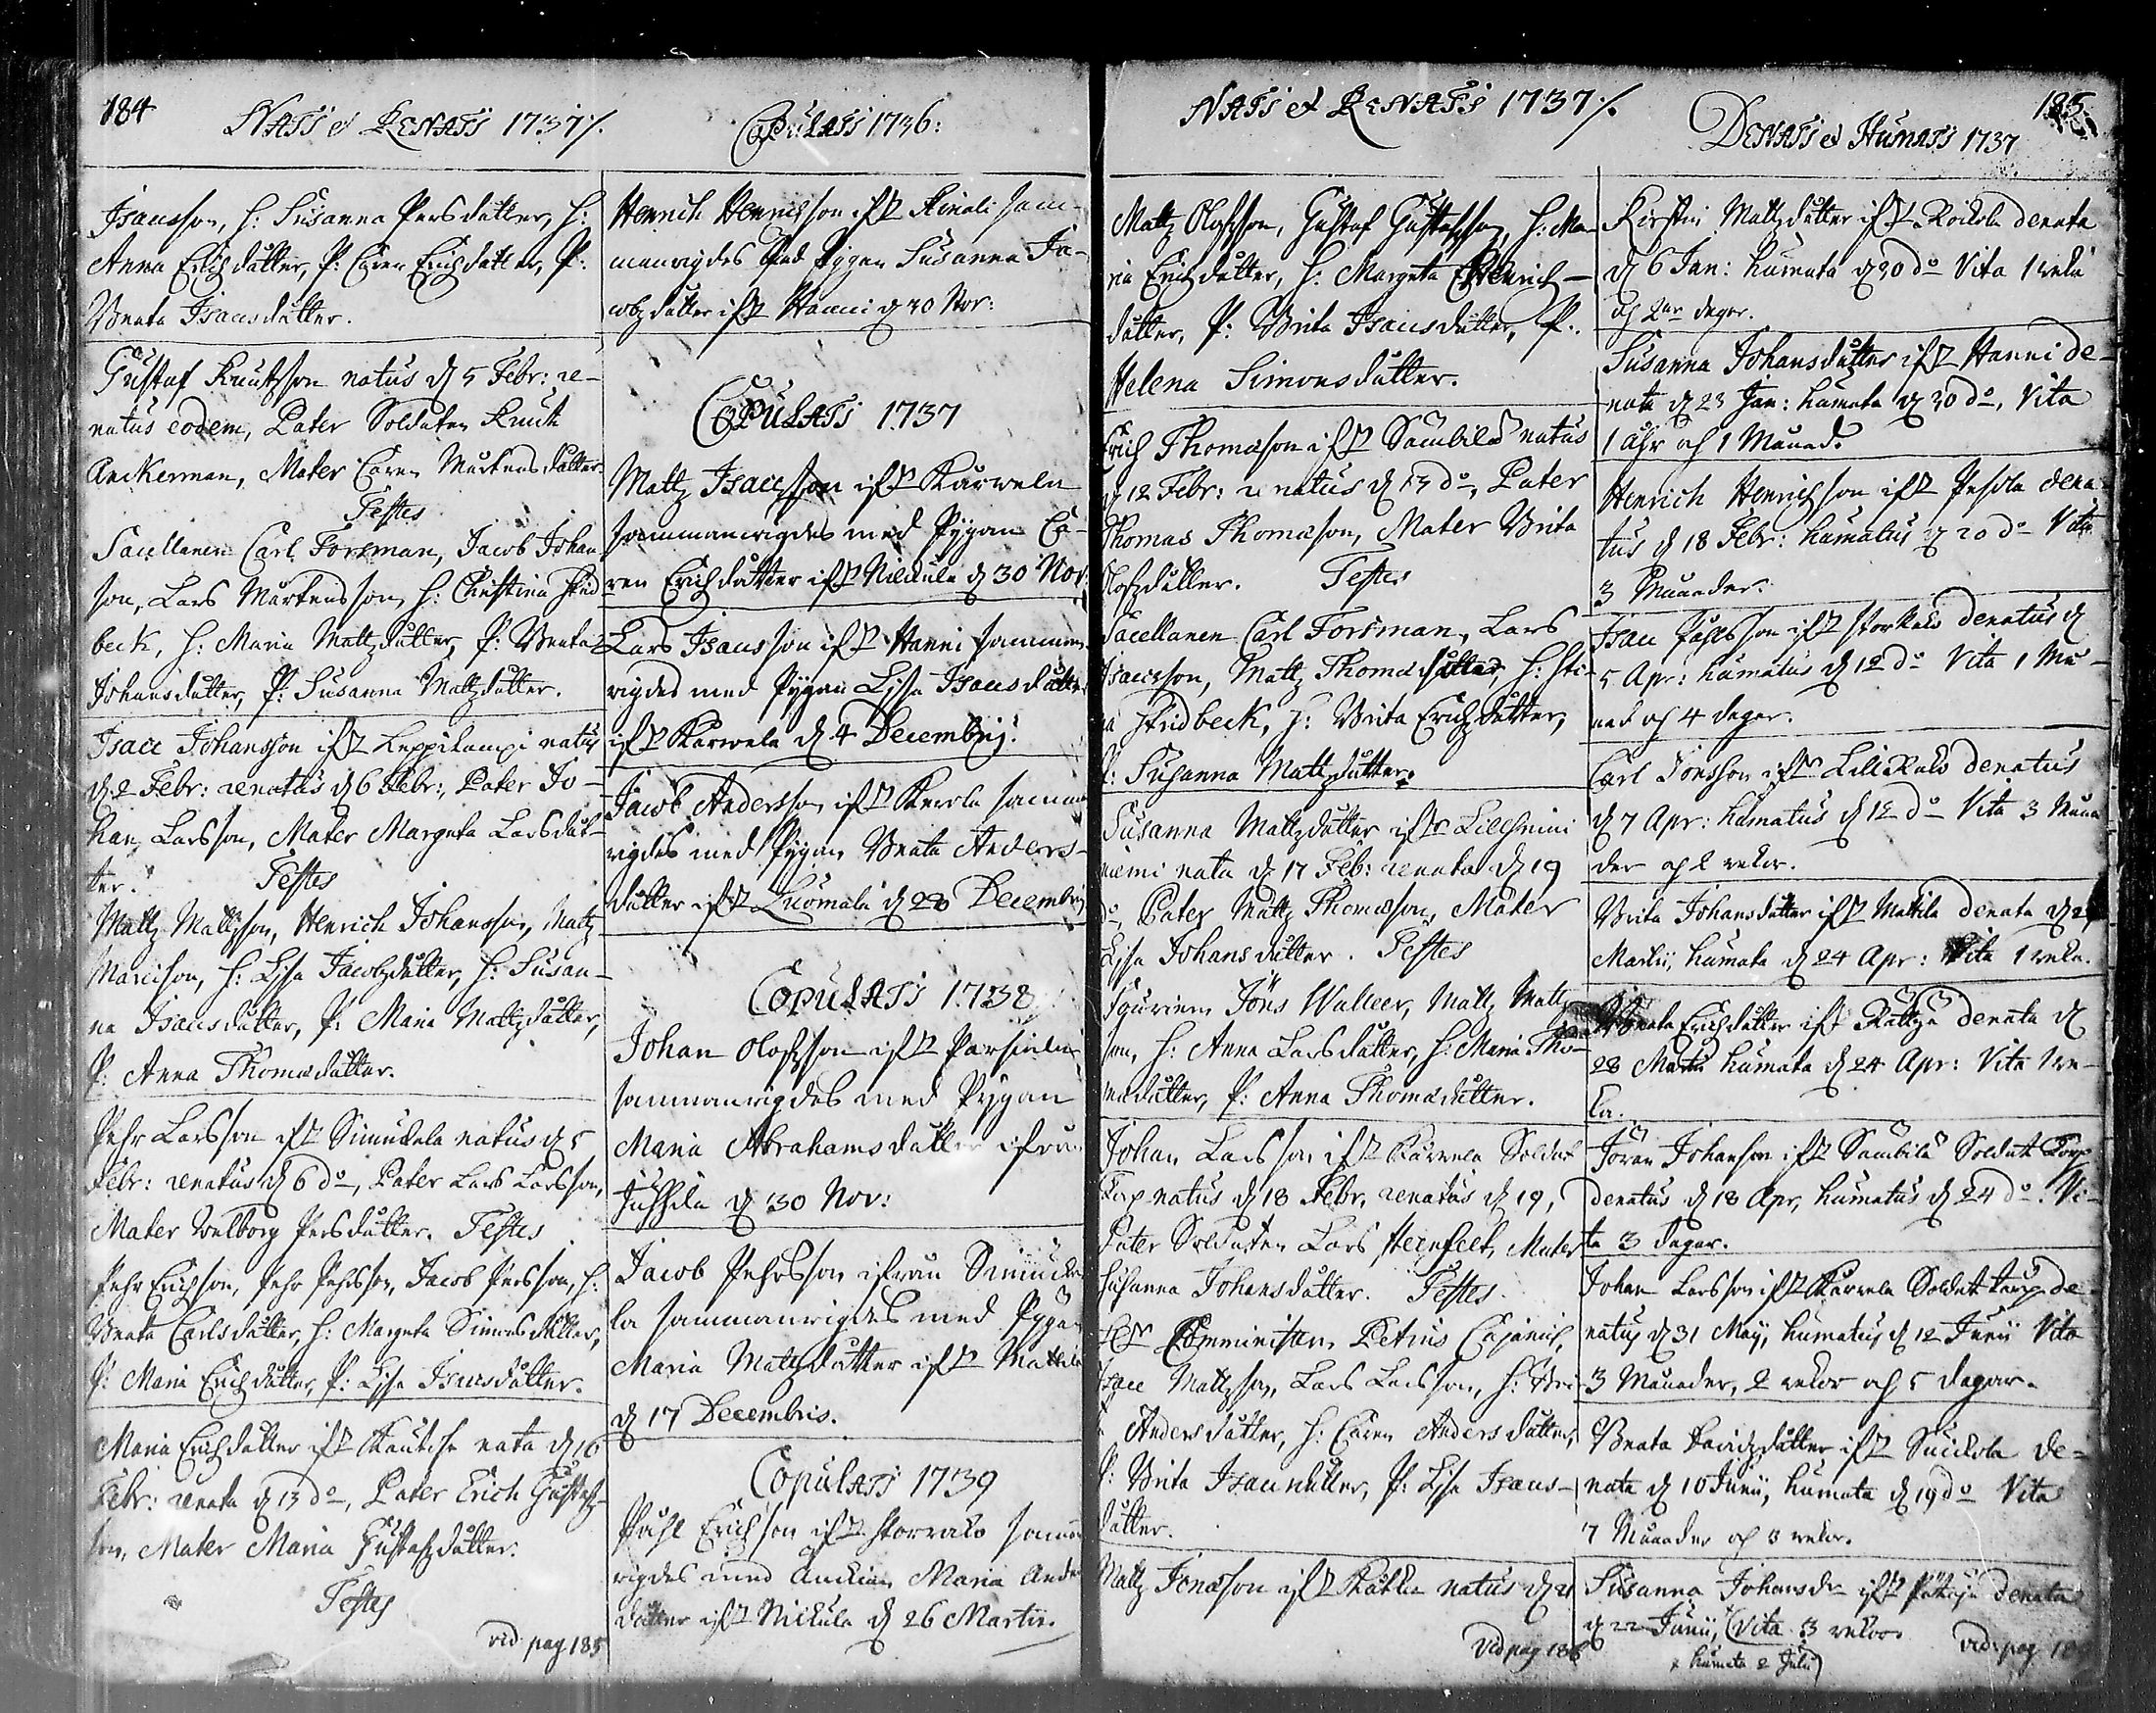 184
NATI et RENATI 1737 /.
Isaacsson, H: Susanna Persdatter, H:
Anna Erichdatter, P: Caren Erichdatter, P:
Beata Isaacsdatter.
Gustaf Knutsson natus d 5 Febr: re-
natus eodem, Pater Soldaten Knut
Anckerman, Mater Caren Mårtensdatter.
Testes
Sacellanen Carl Forsman, Jacob Johan
son, Lars Mårtensson, H: Christina Hid
beck, H: Maria Mattzdatter, P: Beata
Johansdatter, P: Susanna Mattzdatter.
Isaac Johansson ifr Leppikampi natus
d 2 Febr: renatus d 6 Febr:, Pater Jo-
han Larsson, Mater Margeta Larsdat-
ter. Testes
Mattz Mattzson, Henrich Johansson, Mattz
Marcison, H: Lisa Jacobzdatter, H: Susan-
na Isaacsdatter, P: Maria Mattzdatter,
P: Anna Thomædatter.
Pehr Larsson ifr Simukala natus d 5
Febr: renatus d 6 do, Pater Lars Larsson,
Mater Walborg Persdatter. Testes
Pehr Erichson, Pehr Pehrsson, Jacob Persson, H:
Beata Carlsdatter, H: Margeta Simonsdatter,
P: Maria Erichdatter, P: Lisa Isaacsdatter.
Maria Erichdatter ifr nata d 10
Febr: renata d 13 do, Pater Erich Gustafz-
son, Mater Maria Gustafzdatter.
Testes
vid: pag 185
COPULATI 1736:
Henrich Henrichson ifr sam-
manvigdes med Pygan Susanna Ja-
cobzdatter ifr Hanni d 20 Nor:
COPULATI 1737
Mattz Isaacsson ifr Karwela
sammanvigdes med Pygan Ca-
ren Erichdatter ifr Nickula d 30 Nov:
Lars Isaacsson ifr Hanni samman
vigdes med Pygan Lisa Isaacsdatter
ifr Karwela d 4 Decembris.
Jacob Andersson ifr Kerola samman
vigdes med Pygan Beata Anders-
datter ifr Luomala d 28 Decembris
COPULATI 1738
Johan Olofzson ifr
sammanvigdes med Pygan
Maria Abrahamsdatter ifrån
Juhhila d 30 Nov:
Jacob Pehrsson ifrån Simucka
la sammanvigdes med Pygan
Maria Mattzdatter ifr Mattila
d 17 Decembris.
Copulati 1739
Påhl Erichson ifr Storralo samman
vigdes med Änckian Maria Anders
datter ifr Nickula d 26 Martii.
NATI et RENATI 1737 /.
Mattz Olofzson, Gustaf Gustafsson, H: Ma-
ria Erichdatter, H: Margeta Henrich-
datter, P: Brita Isaacsdatter, P:
Helena Simonsdatter.
Erich Thomæson ifr Sambila natus
d 12 Febr: renatus d 13 do, Pater
Thomas Thomæson, Mater Brita
Olofzdatter. Testes
Sacellanen Carl Forsman, Lars
Isaacsson, Mattz Thomædatter, H: Sti-
na Hidbeck, H: Brita Erichdatter,
P: Susanna Mattzdatter.
Susanna Mattzdatter ifr Lillheini
niemi nata d 17 Feb: renata d 19
do Pater Mattz Thomæson, Mater
Lisa Johansdatter. Testes
Jöns Walleer, Mattz Mattz
son, H: Anna Larsdatter, H: Maria Tho-
mædatter, P: Anna Thomædatter.
Johan Larsson ifr Karwela Soldat
Torp natus d 18 Febr, renatus d 19,
Pater Soldaten Lars Steenfelt, Mater
Susanna Johansdatter. Testes
Hr Comministern Petrus Cajanus,
Isaac Mattzson, Lars Larsson, H: Bri-
Andersdatter, H: Caren Andersdatter,
P: Brita Isaacsdatter, P: Lisa Isaacs-
datter.
Mattz Jonæson ifr natus d 21
Vid pag 186
185
DENATI et HUMATI 1737
Kirstin Mattzdatter ifr Rockola denata
d 6 Jan: humata d 30 do Vita 1 weka
och 2ne dagar.
Susanna Johansdatter ifr Hanni de-
nata d 23 Jan: humata d 30 do, Vita
1 åhr och 1 Månad.
Henrich Henrichson ifr Pesola dena-
tus d 18 Febr: humatus d 20 do Vita
3 Månader.
Isaac Påhlsson ifr Storkalo denatus d
5 Apr: humatus d 12 do Vita 1 Må-
nad och 4 dagar.
Carl Jönsson ifr Lillralo denatus
d 7 Apr: humatus d 12 do Vita 3 Måna
der och 2 wekor.
Brita Johansdatter ifr Mattila denata d 24
Martii, humata d 24 Apr: Vita 1 weka.
Beata Erichdatter ifr denata d
28 Martii humata d 24 Apr: Vita 1 we-
ka.
Jöran Johanson ifr Sambila Soldat Torp
denatus d 18 Apr, humatus d 24 do. Vi-
ta 3 dagar.
Johan Larsson ifr Karwela Soldat torp de
natus d 31 Maji, humatus d 12 Junii Vita
3 Månader, 2 wekor och 5 dagar.
Beata Davidzdatter ifr Suckola de-
nata d 10 Junii, humata d 19 do Vita
7 Månader och 3 wekor.
Susanna Johansdr ifr denata
d 22 Junii, (Vita 3 wekor.
x humata 2 Julii)
vid: pag